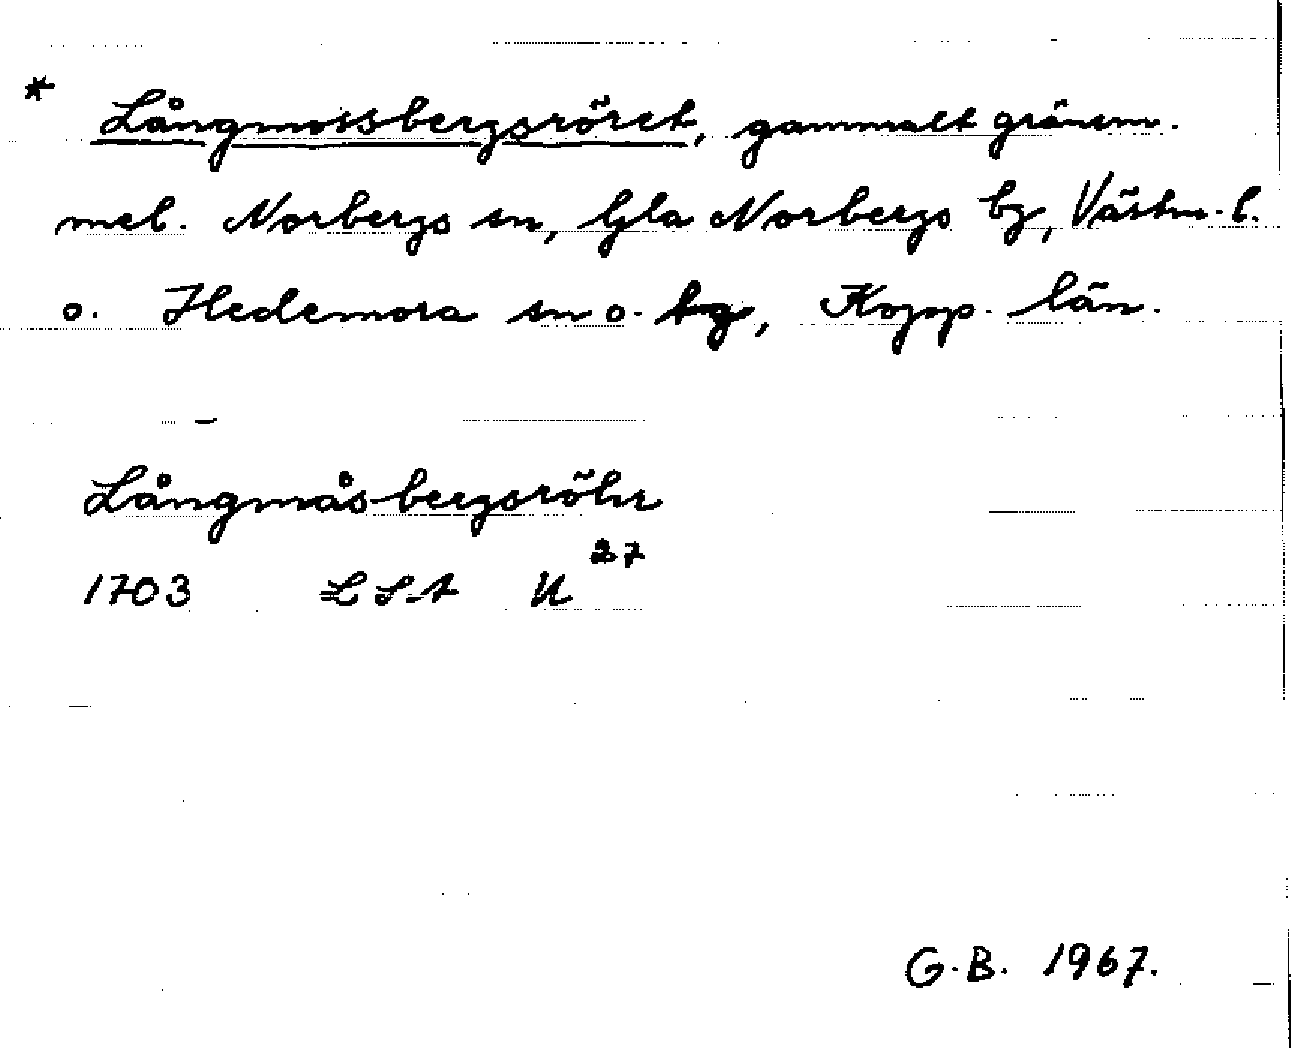 * Långmossbergsröret, gammalt gränsm.
mel. Norbergs sn, Gla Norbergs bg, Västm. l.
o. Hedemora sn o. bg, Kopp. län.
Långmåsbergsröhr
1703 LSA U 27
G.B. 1967.